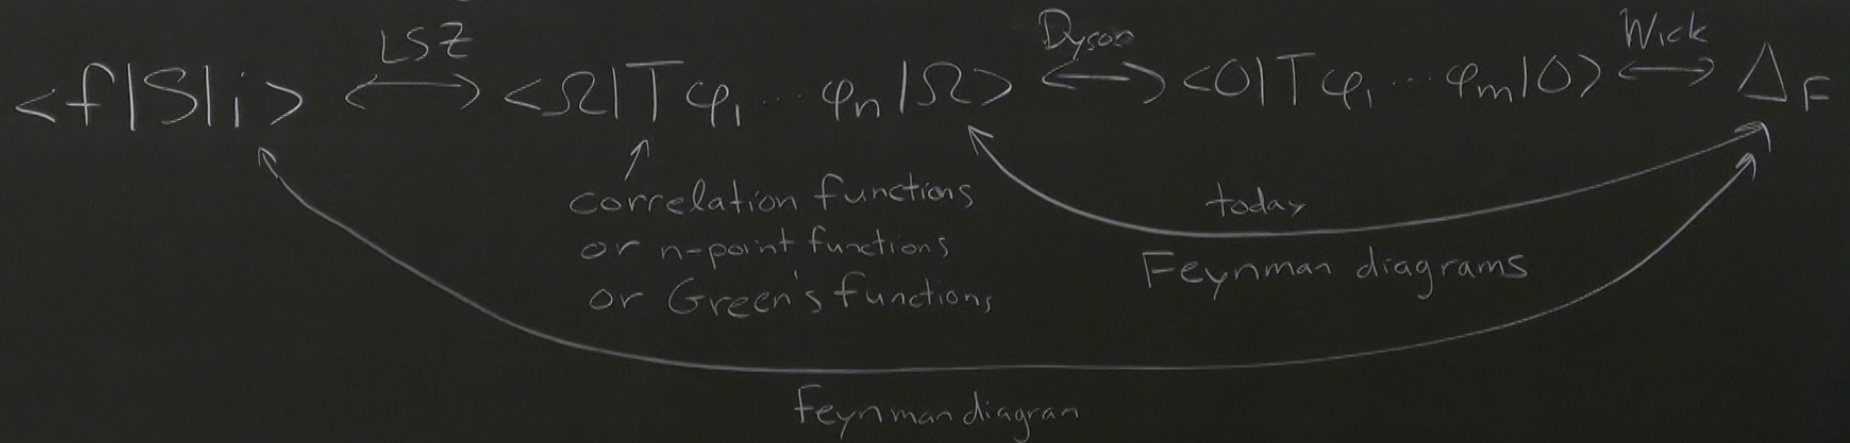 LSZ Dyson Wick
<f|S|i> ⟷ <Ω|Tφ₁ ⋯ φₙ|Ω> ⟷ <0|Tφ₁ ⋯ φₘ|0> ⟷ Δ_F
correlation functions
or n-point functions
or Green's functions
today
Feynman diagrams
Feynman diagram